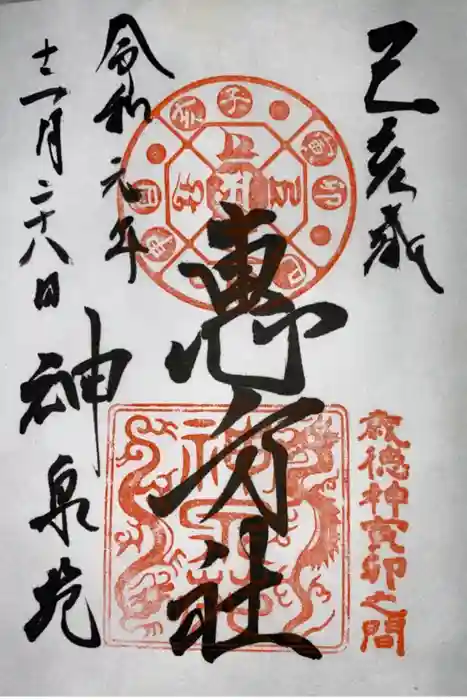 己亥歳
歳徳神寅卯之間
恵方社
令和元年
十一月二十八日
神泉苑